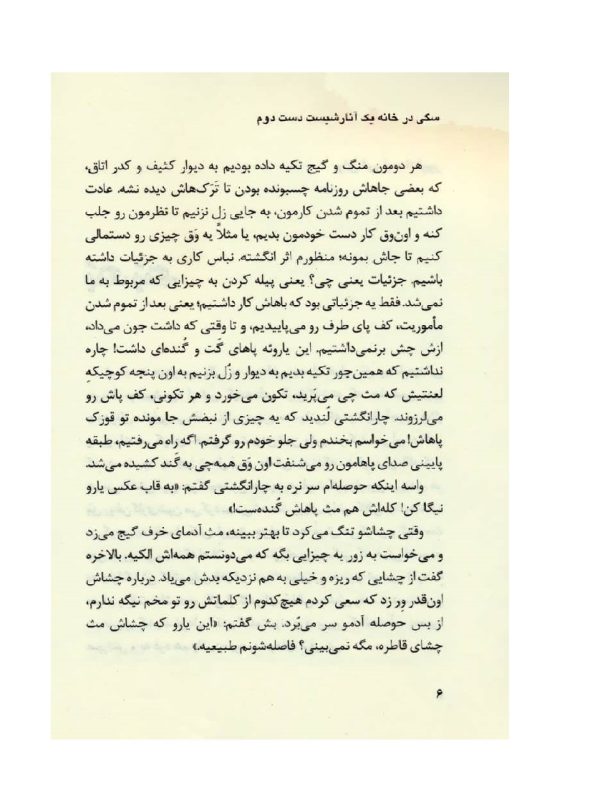 سگی در خانه یک آنارشیست دست دوم
هر دومون منگ و گیج تکیه داده بودیم به دیوار کثیف و کدر اتاق،
که بعضی جاهاش روزنامه چسبونده بودن تا تَرَک‌هاش دیده نشه. عادت
داشتیم بعد از تموم شدن کارمون، به جایی زل نزنیم تا نظرمون رو جلب
کنه و اون‌وق کار دست خودمون بدیم، یا مثلاً یه وَق چیزی رو دستمالی
کنیم تا جاش بمونه؛ منظورم اثر انگشته. نباس کاری به جزئیات داشته
باشیم. جزئیات یعنی چی؟ یعنی پیله کردن به چیزایی که مربوط به ما
نمی‌شد. فقط یه جزئیاتی بود که باهاش کار داشتیم؛ یعنی بعد از تموم شدن
مأموریت، کف پای طرف رو می‌پاییدیم، و تا وقتی که داشت جون می‌داد،
ازش چش برنمی‌داشتیم. این یاروئه پاهای گَت و گُنده‌ای داشت! چاره
نداشتیم که همین‌جور تکیه بدیم به دیوار و زُل بزنیم به اون پنجه کوچیکهِ
لعنتیش که مث چی می‌پَرید، تکون می‌خورد و هر تکونی، کف پاش رو
می‌لرزوند. چارانگشتی لُندید که یه چیزی از نبضش جا مونده تو قوزک
پاهاش! می‌خواسم بخندم ولی جلو خودم رو گرفتم. اگه راه می‌رفتیم، طبقه
پایینی صدای پاهامون رو می‌شنفت اون وَق همه‌چی به گَند کشیده می‌شد.
واسه اینکه حوصله‌ام سر نره به چارانگشتی گفتم: «به قاب عکس یارو
نیگا کن! کله‌اش هم مث پاهاش گُنده‌ست!»
وقتی چشاشو تنگ می‌کرد تا بهتر ببینه، مث آدمای خرف گیج می‌زد
و می‌خواست به زور یه چیزایی بگه که می‌دونستم همه‌اش الکیه. بالاخره
گفت از چشایی که ریزه و خیلی به هم نزدیکه بدش می‌یاد. درباره چشاش
اون‌قدر وِر زد که سعی کردم هیچ‌کدوم از کلماتش رو تو مخم نیگه ندارم،
از بس حوصله آدمو سر می‌بُرد. بش گفتم: «این یارو که چشاش مث
چشای قاطره، مگه نمی‌بینی؟ فاصله‌شونم طبیعیه.»
۶